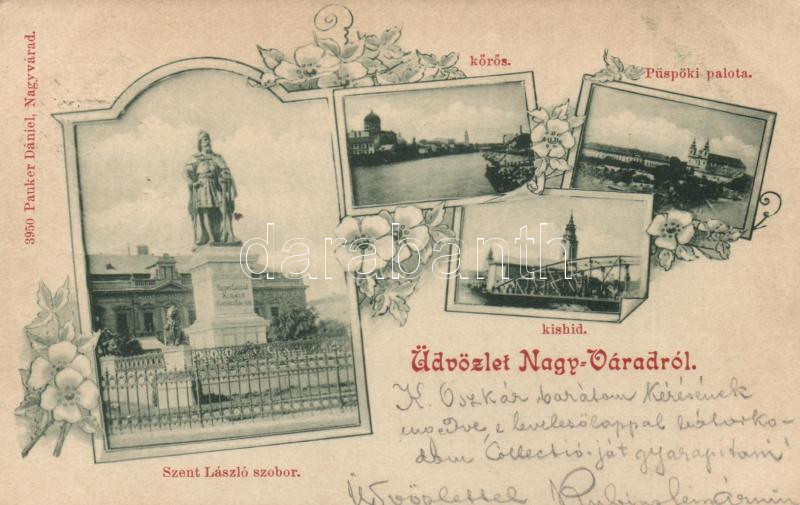 3950 Pauker Dániel, Nagyvárad.
kőrős.
Püspöki palota.
darabanth.com
kishid.
Üdvözlet Nagy-Váradról.
Szent László szobor.
K. Oszkár barátom kérésének
e levelezőlappal bátorko-
dom Collectió-ját gyarapitani
Üdvözlettel